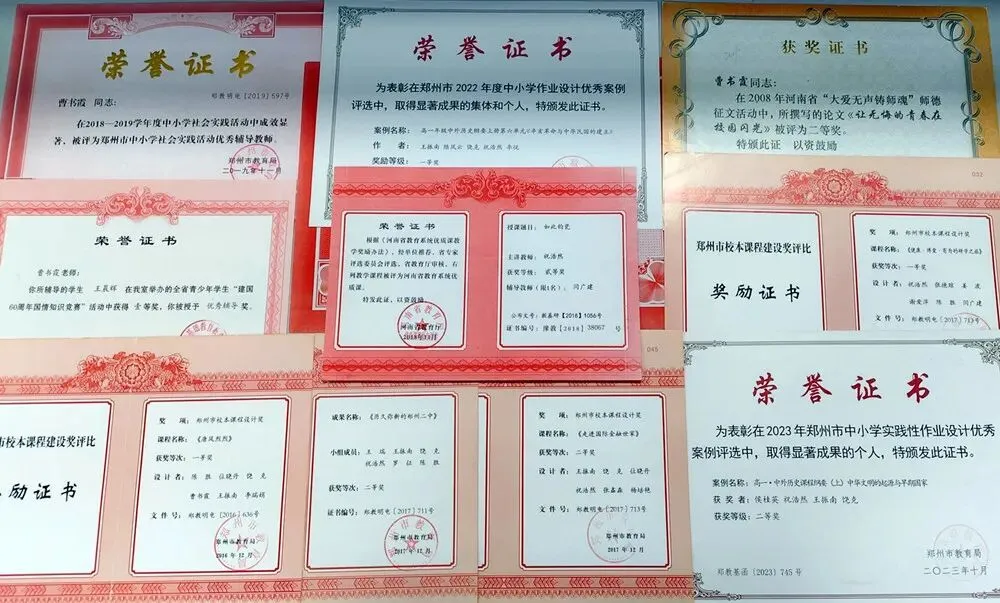 荣誉证书
曹书霞 同志：
郑教明电〔2019〕597号
在2018—2019学年度中小学社会实践活动中成效显
著、被评为郑州市中小学社会实践活动优秀辅导教师。
郑州市教育局
二〇一九年十一月
荣誉证书
为表彰在郑州市2022年度中小学作业设计优秀案例
评选中，取得显著成果的集体和个人，特颁发此证书。
案例名称：高一年级中外历史纲要上册第六单元《辛亥革命与中华民国的建立》
作 者：王振南 陈凤云 饶克 祝浩然
奖励等级：一等奖
获奖证书
曹书霞同志：
在2008年河南省“大爱无声铸师魂”师德
征文活动中，所撰写的论文《让无悔的青春在
校园闪光》被评为二等奖。
特颁此证 以资鼓励
荣誉证书
曹书霞老师：
你所辅导的学生 王晨辉 在我室举办的全省青少年学生“建国
60周年国情知识竞赛”活动中获得 壹等奖，你被授予 优秀辅导 奖。
荣誉证书
根据《河南省教育系统优质课教
学奖励办法》，经单位推荐、省专家
评选委员会评选、省教育厅审核，有
列教学课程被评为河南省教育系统优
质课。
特发此证，以资鼓励
河南省教育厅
授课题目：如此钧瓷
主讲教师：祝浩然
获奖等级：贰等奖
辅导教师（限1名）：闫广建
公布文号：教基研【2018】1056号
证书编号：豫教【2018】38067 号
032
郑州市校本课程建设奖评比
奖励证书
奖 项：郑州市校本课程设计奖
获奖等次：一等奖
设 计 者：祝浩然 张艳琼 姜波
谢爱萍 陈胜 闫广建
文 件 号：郑教明电【2017】713号
市校本课程建设奖评比
励证书
奖 项：郑州市校本课程设计奖
课程名称：《唐风烈烈》
获奖等次：一等奖
设 计 者：陈胜 位晓丹 饶克
曹书霞 王振南 李瑞娟
文 件 号：郑教明电【2016】636号
郑州市教育局
2016年12月
成果名称：《历久弥新的郑州二中》
小组成员：王瑞 王振南 饶克
祝浩然 罗征 陈胜
获奖等次：二等奖
证书编号：郑教明电【2017】711号
郑州市教育局
2017年12月
045
奖 项：郑州市校本课程设计奖
课程名称：《走进国际金融世家》
获奖等次：二等奖
设 计 者：王振南 饶克 位晓丹
祝浩然 张嘉淼 杨培艳
文 件 号：郑教明电【2017】713号
郑州市教育局
2017年12月
荣誉证书
为表彰在2023年郑州市中小学实践性作业设计优秀
案例评选中，取得显著成果的个人，特颁发此证书。
案例名称：高一·中外历史课程纲要（上）中华文明的起源与早期国家
获 奖 者：侯桂英 祝浩然 王振南 饶克
获奖等级：二等奖
郑教基函〔2023〕745号
郑州市教育局
二〇二三年十月